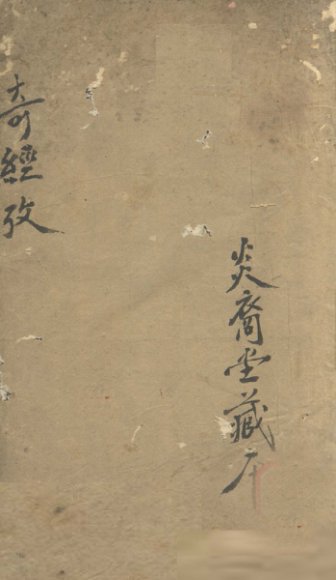 炎裔堂藏本
奇經攷